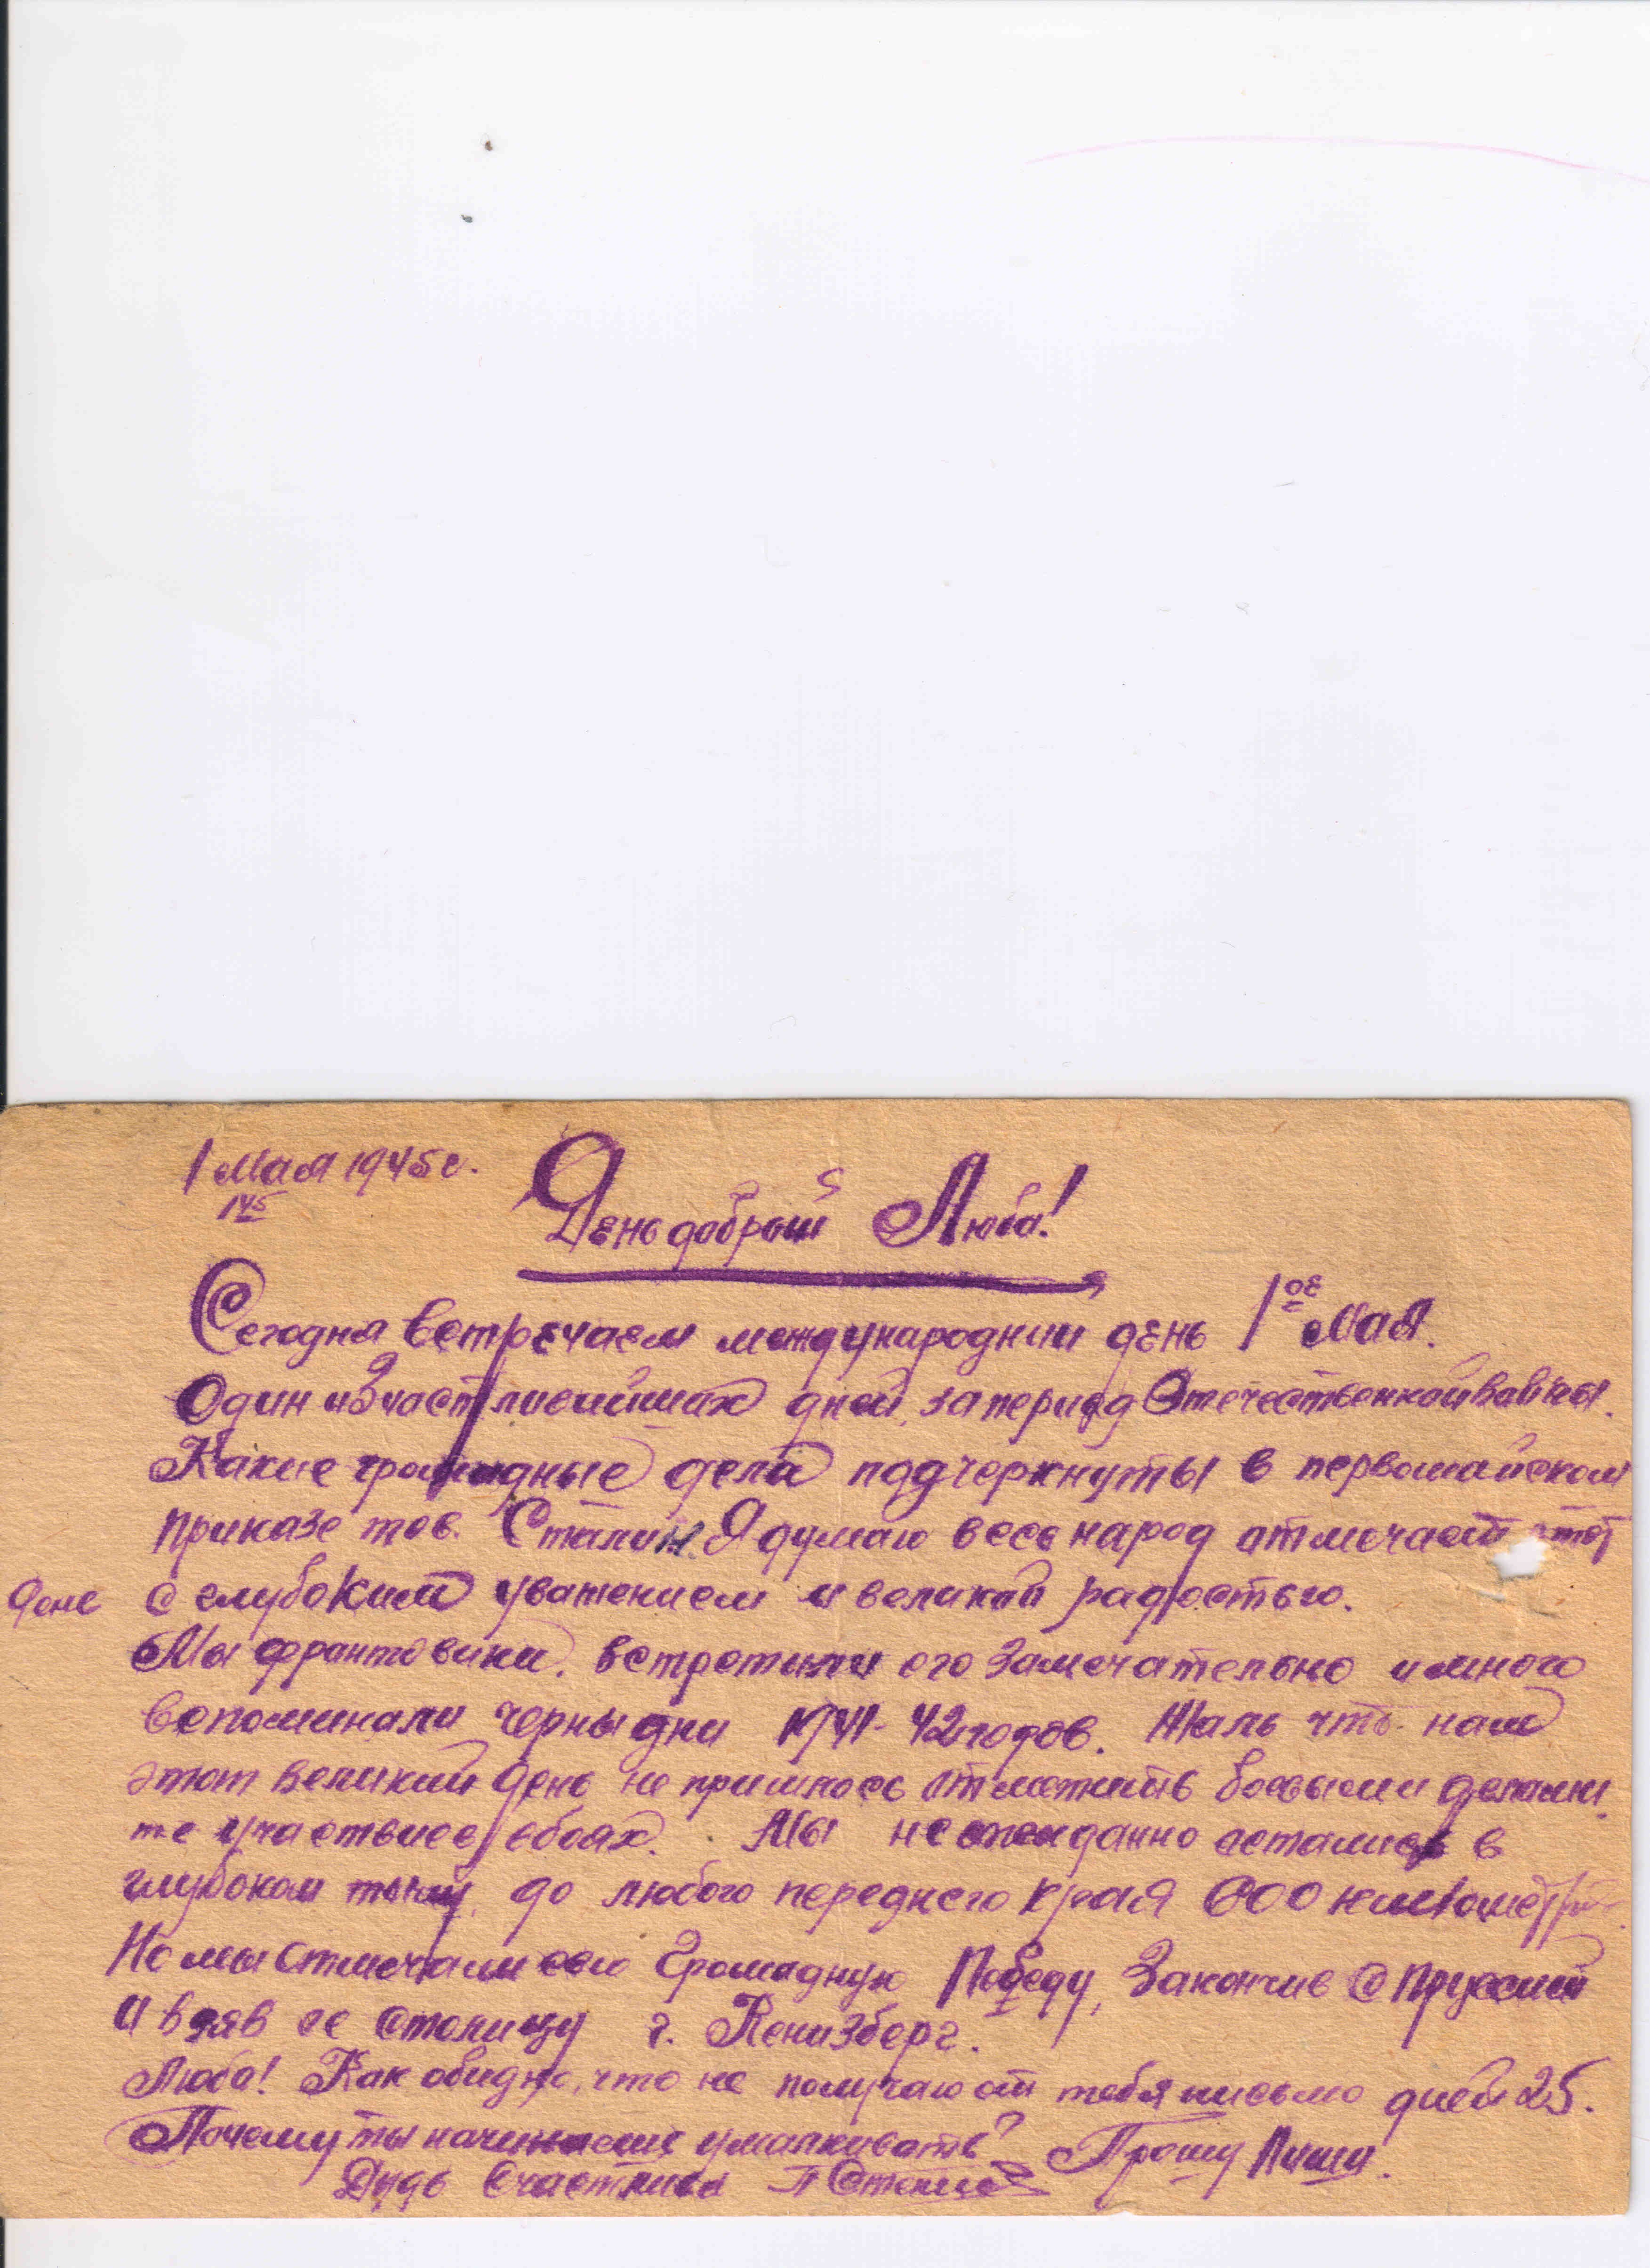 1 Мая 1945 г.
145
День добрый Люба!
Сегодня встречаем международный день 1ое Мая.
Один из частливейших дней, за период Отечественной
Какие громадные дела подчеркнуты в первомайском
приказе тов. Сталин. Я думаю весь народ отмечает этот
день с глубоким уважением и великой радостью.
Мы франтовики. встретили его замечательно и много
вспоминали черны дни 1941-42 годов. Жаль что нам
этот великий день не пришлось отметить боевыми делами
те участвием в боях. Мы неожиданно остались в
глубоком тылу, до любого переднего края 600
Но мы отмечали свою Громадную Победу, Закончив с Пруссией
и взяв ее столицу г. Кенизберг.
Люба! Как обидно, что не получаю от тебя письмо дней 25.
Почему ты начинаеш умалкивать? Прошу Пиши.
Будь Счастлива П